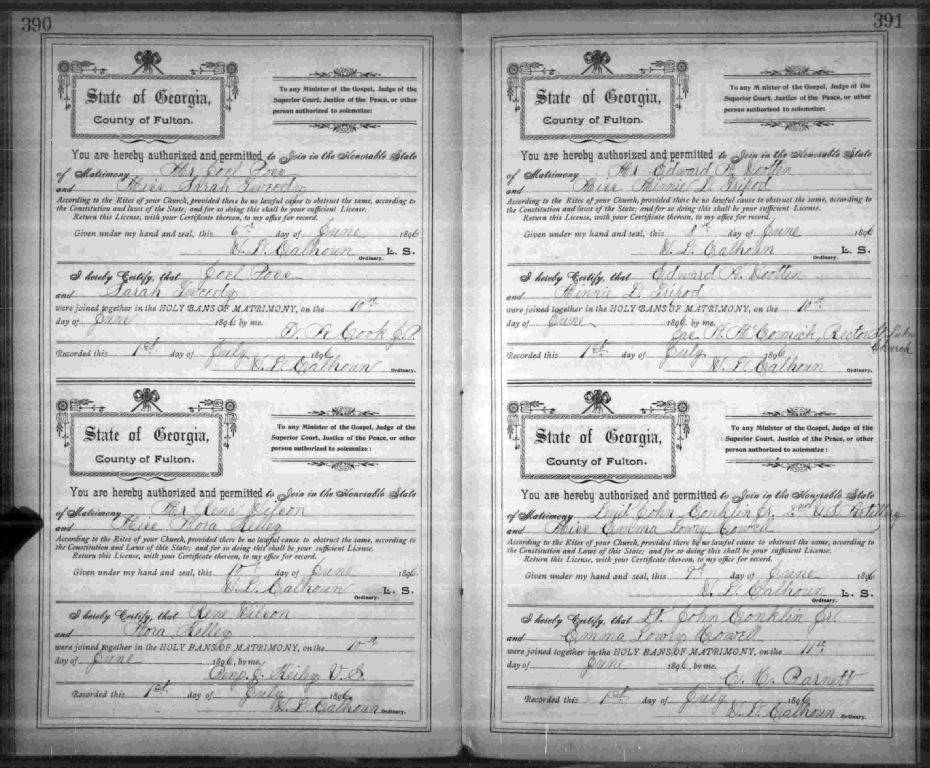 390
State of Georgia,
County of Fulton.
To any Minister of the Gospel, Judge of the
Superior Court, Justice of the Peace, or other
person authorized to solemnize:
You are hereby authorized and permitted to Join in the Honorable State
of Matrimony Mr Joel
and Miss Sarah
According to the Rites of your Church, provided there be no lawful cause to obstruct the same, according to
the Constitution and laws of the State; and for so doing this shall be your sufficient License.
Return this License, with your Certificate thereon, to my office for record.
Given under my hand and seal, this 6th day of June 1896
W. L. Calhoun L. S.
Ordinary.
I hereby Certify, that Joel
and Sarah
were joined together in the HOLY BANS OF MATRIMONY, on the 10th
day of June 1896 by me.
Cook J.P.
Recorded this 1st day of July 1896
W. L. Calhoun
Ordinary.
State of Georgia,
County of Fulton.
To any Minister of the Gospel, Judge of the
Superior Court, Justice of the Peace, or other
person authorized to solemnize:
You are hereby authorized and permitted to Join in the Honorable State
of Matrimony Mr Rene
and Miss Flora Kelley
According to the Rites of your Church, provided there be no lawful cause to obstruct the same, according to
the Constitution and Laws of this State; and for so doing this shall be your sufficient License.
Return this License, with your Certificate thereon, to my office for record.
Given under my hand and seal, this 10th day of June 1896
W. L. Calhoun L. S.
Ordinary.
I hereby Certify, that Rene
and Flora Kelley
were joined together in the HOLY BANS OF MATRIMONY, on the 10th
day of June 1896, by me.
Benj. J. Keiley V. G.
Recorded this 1st day of July 1896
W. L. Calhoun
Ordinary.
391
State of Georgia,
County of Fulton.
To any Minister of the Gospel, Judge of the
Superior Court, Justice of the Peace, or other
person authorized to solemnize:
You are hereby authorized and permitted to Join in the Honorable State
of Matrimony Mr Edward R. Wootten
and Miss Minnie L. Tripod
According to the Rites of your Church, provided there be no lawful cause to obstruct the same, according to
the Constitution and laws of the State; and for so doing this shall be your sufficient License.
Return this License, with your Certificate thereon, to my office for record.
Given under my hand and seal, this 8th day of June 1896
W. L. Calhoun L. S.
Ordinary.
I hereby Certify, that Edward R. Wootten
and Minnie L. Tripod
were joined together in the HOLY BANS OF MATRIMONY, on the 10th
day of June 1896 by me.
McCormick, Rector St Lukes
Church
Recorded this 1st day of July 1896
W. L. Calhoun
Ordinary.
State of Georgia,
County of Fulton.
To any Minister of the Gospel, Judge of the
Superior Court, Justice of the Peace, or other
person authorized to solemnize:
You are hereby authorized and permitted to Join in the Honorable State
of Matrimony Lieut John Conklin Jr, 2nd U.S. Artillery
and Miss Emma Lowry Howell
According to the Rites of your Church, provided there be no lawful cause to obstruct the same, according to
the Constitution and Laws of this State; and for so doing this shall be your sufficient License.
Return this License, with your Certificate thereon, to my office for record.
Given under my hand and seal, this 9th day of June 1896
W. L. Calhoun L. S.
Ordinary.
I hereby Certify, that Lt. John Conklin Jr.
and Emma Lowry Howell
were joined together in the HOLY BANS OF MATRIMONY, on the 11th
day of June 1896, by me.
E. H. Barnett
Recorded this 1st day of July 1896
W. L. Calhoun
Ordinary.